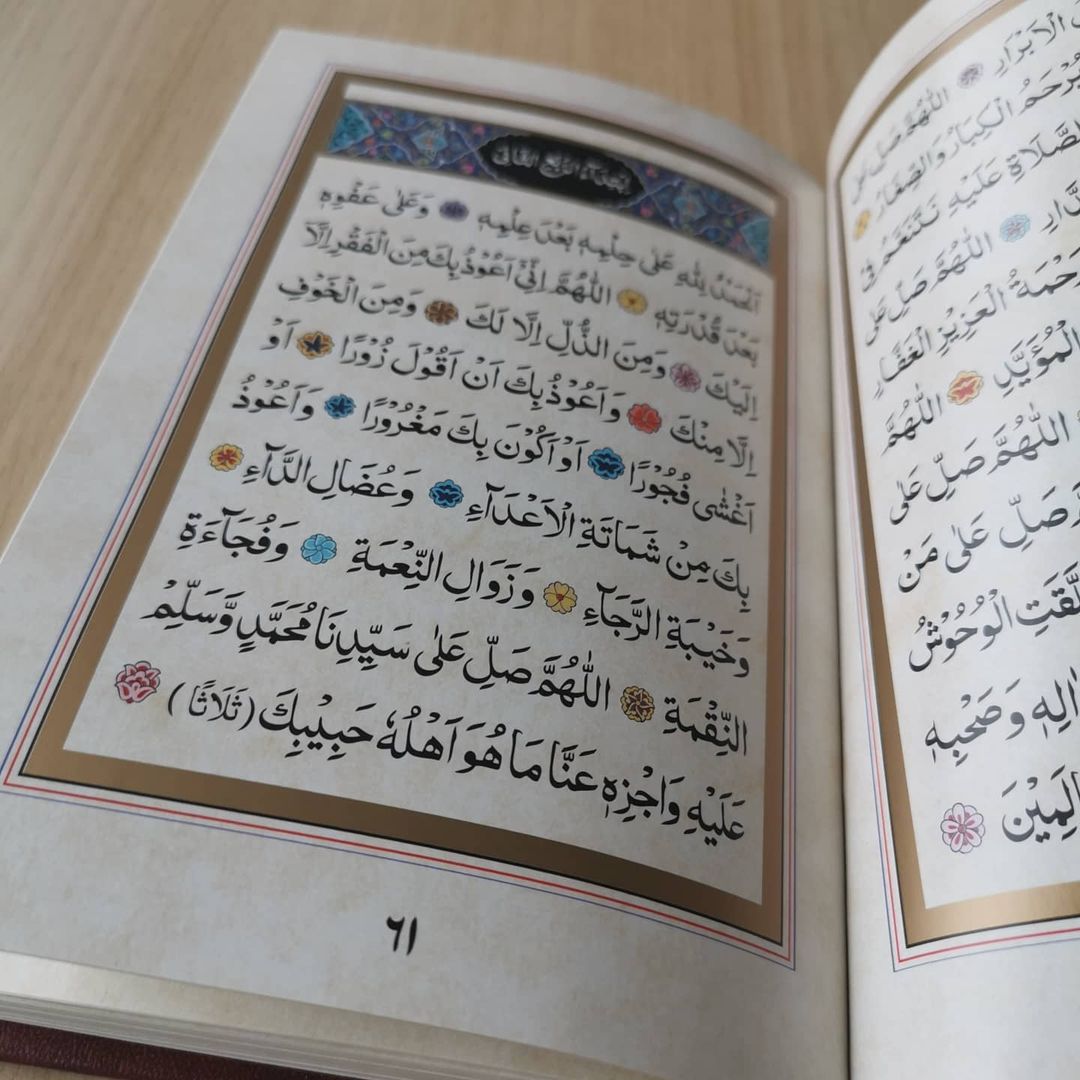 اِبْتِدَاءُ الرُّبُعِ الثَّانِي
اَلْحَمْدُ لِلّٰهِ عَلٰى حِلْمِهٖ بَعْدَ عِلْمِهٖ وَعَلٰى عَفْوِهٖ
بَعْدَ قُدْرَتِهٖ اَللّٰهُمَّ اِنِّىٓ اَعُوْذُ بِكَ مِنَ الْفَقْرِ اِلَّآ
اِلَيْكَ وَمِنَ الذُّلِّ اِلَّا لَكَ وَمِنَ الْخَوْفِ
اِلَّا مِنْكَ وَاَعُوْذُ بِكَ اَنْ اَقُوْلَ زُوْرًا اَوْ
اَغْشٰى فُجُوْرًا اَوْ اَكُوْنَ بِكَ مَغْرُوْرًا وَاَعُوْذُ
بِكَ مِنْ شَمَاتَةِ الْاَعْدَآءِ وَعُضَالِ الدَّآءِ
وَخَيْبَةِ الرَّجَآءِ وَزَوَالِ النِّعْمَةِ وَفُجَآءَةِ
النِّقْمَةِ اَللّٰهُمَّ صَلِّ عَلٰى سَيِّدِنَا مُحَمَّدٍ وَّسَلِّمْ
عَلَيْهِ وَاجْزِهٖ عَنَّا مَا هُوَ اَهْلُهٗ حَبِيْبِكَ (ثَلَاثًا)
٦١
الْاَبْرَارِ اَللّٰهُمَّ صَلِّ عَلٰى
الْكِبَارُ وَالصِّغَارُ
الصَّلَاةِ عَلَيْهِ نَتَنَعَّمُ فِىْ
اَللّٰهُمَّ صَلِّ عَلٰى
رَحْمَةُ الْعَزِيْزِ الْغَفَّارِ
الْمُؤَيَّدِ اَللّٰهُمَّ
اَللّٰهُمَّ صَلِّ عَلٰى
وَصَلِّ عَلٰى مَنْ
الْوُحُوْشُ
اٰلِهٖ وَصَحْبِهٖ